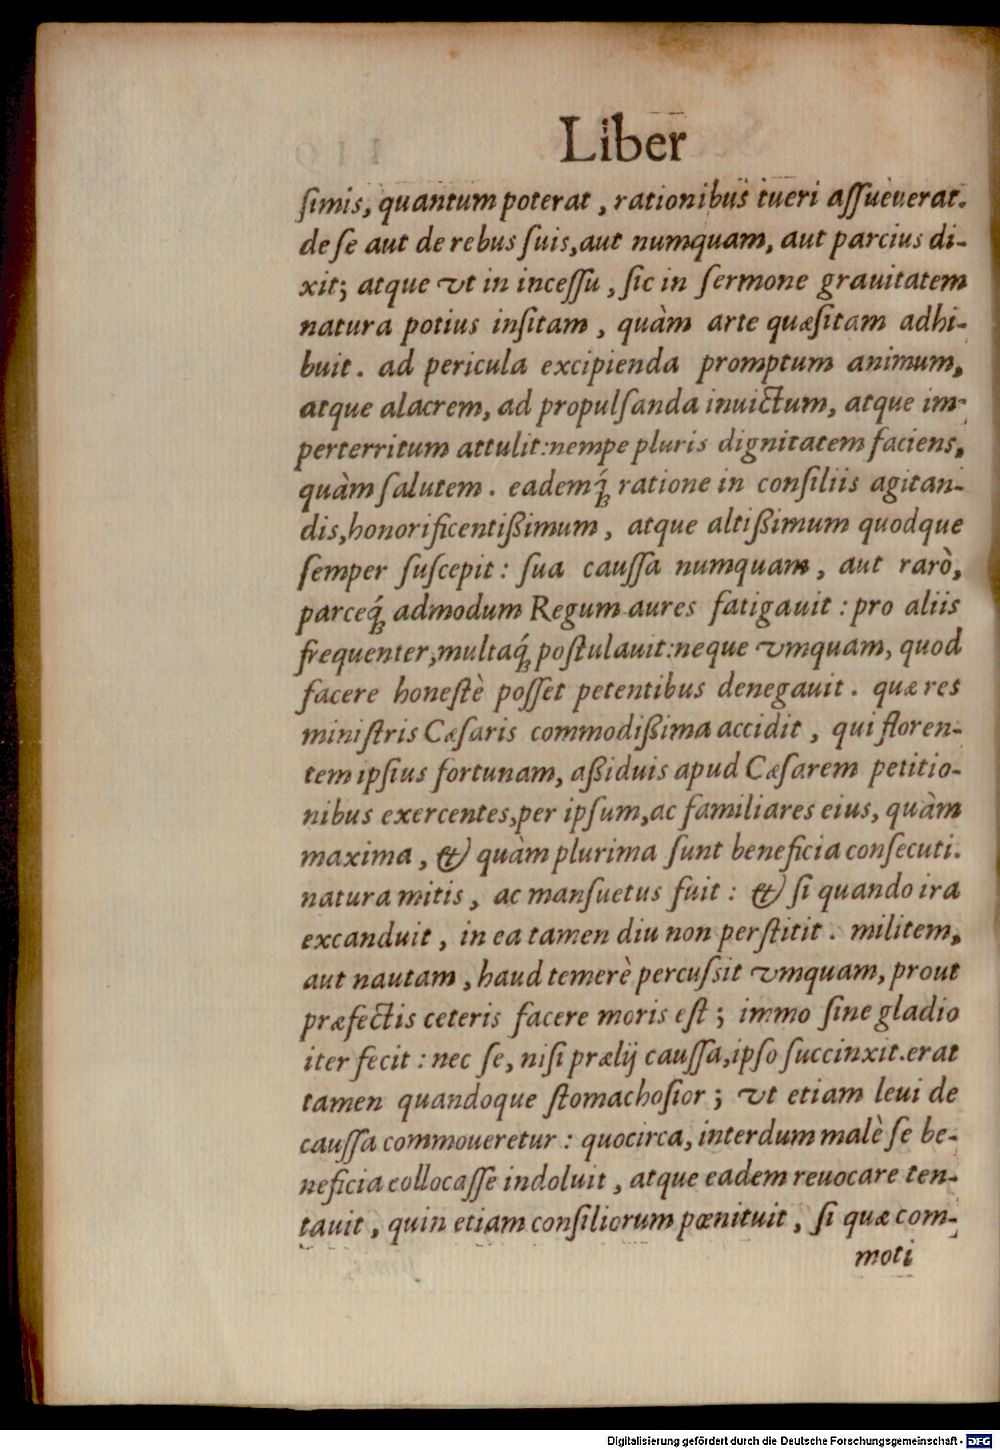 Liber
ſimis, quantum poterat, rationibus tueri aſſueuerat.
de ſe aut de rebus ſuis, aut numquam, aut parcius di-
xit; atque vt in inceſſu, ſic in ſermone grauitatem
natura potius inſitam, quàm arte quæſitam adhi-
buit. ad pericula excipienda promptum animum,
atque alacrem, ad propulſanda inuictum, atque im-
perterritum attulit: nempe pluris dignitatem faciens,
quàm ſalutem. eademq́; ratione in conſiliis agitan-
dis, honorificentißimum, atque altißimum quodque
ſemper ſuſcepit: ſua cauſſa numquam, aut rarò,
parceq́; admodum Regum aures fatigauit: pro aliis
frequenter, multaq́; poſtulauit: neque vmquam, quod
facere honeſtè poſſet petentibus denegauit. quæ res
miniſtris Cæſaris commodißima accidit, qui floren-
tem ipſius fortunam, aßiduis apud Cæſarem petitio-
nibus exercentes, per ipſum, ac familiares eius, quàm
maxima, & quàm plurima ſunt beneficia conſecuti.
natura mitis, ac manſuetus fuit: & ſi quando ira
excanduit, in ea tamen diu non perſtitit. militem,
aut nautam, haud temerè percuſsit vmquam, prout
præfectis ceteris facere moris eſt; immo ſine gladio
iter fecit: nec ſe, niſi prælij cauſſa, ipſo ſuccinxit. erat
tamen quandoque ſtomachoſior; vt etiam leui de
cauſſa commoueretur: quocirca, interdum malè ſe be-
neficia collocaſſe indoluit, atque eadem reuocare ten-
tauit, quin etiam conſiliorum pœnituit, ſi quæ com-
moti
Digitalisierung gefördert durch die Deutsche Forschungsgemeinschaft - DFG